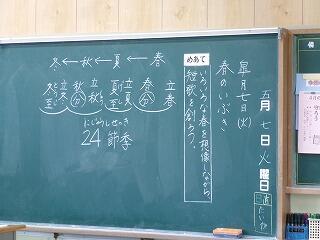 五月七日火曜日
直
皐月七日(火)
春のいぶき
めあて
いろいろな春を想像しながら、
短歌を創ろう。
春→夏→秋→冬
立春
春分
立夏
夏至
立秋
秋分
立冬
冬至
にじゅうしせっき
24節季